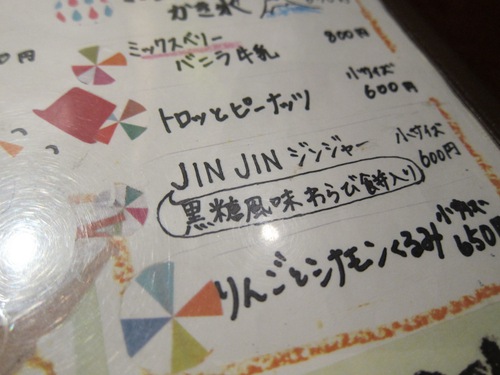 かき氷
円
ミックスベリー
バニラ牛乳 800円
トロッとピーナッツ 小サイズ 600円
JIN JIN ジンジャー 小サイズ 600円
黒糖風味 わらび餅入り
りんごとシナモンくるみ 小サイズ 650円